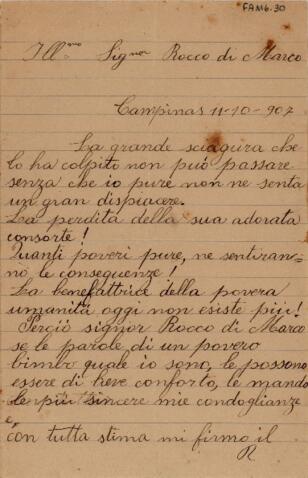 FAM6.30
Ill.mo Signor Rocco di Marco
Campinas 11-10-907
La grande sciagura che
lo ha colpito non può passare
senza che io pure non ne senta
un gran dispiacere.
La perdita della sua adorata
consorte!
Quanti poveri pure, ne sentiran-
no le conseguenze!
La benefattrice della povera
umanità oggi non esiste più!
Perciò signor Rocco di Marco
se le parole di un povero
bimbo quale io sono, le possono
essere di lieve conforto, le mando
le più sincere mie condoglianze
e,
con tutta stima mi firmo il